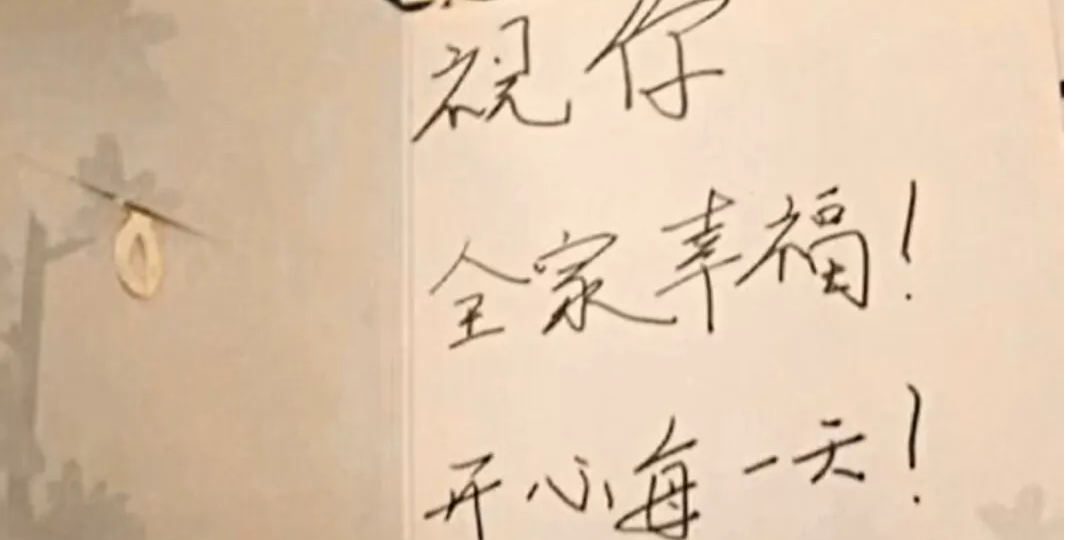 祝你
全家幸福！
开心每一天！